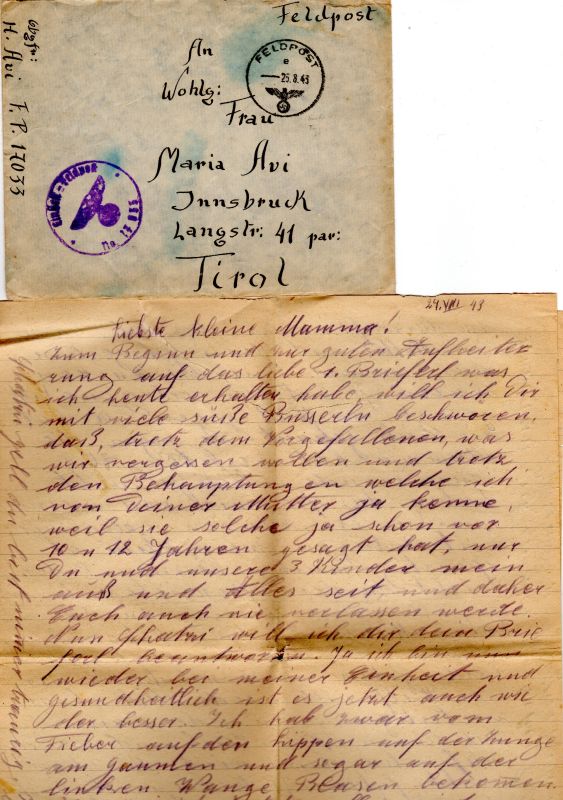 Feldpost
An
Wohlg:
Frau
Maria Avi
Innsbruck
Langstr: 41 par:
Tirol
Abstr:
H. Avi F.P. 17033
FELDPOST
e
25.8.43
29.VIII 43
Liebste kleine Mamma!
Zum Beginn und zur guten Aufheiter
rung auf das liebe 1. Brieferl was
ich heute erhalten habe, will ich Dir
mit viele süße Busserln beschworen,
daß, trotz dem Vorgefallenen, was
wir vergessen wollen und trotz
den Behauptungen welche ich
von Deiner Mutter ja kenne,
weil sie solche ja schon vor
10 u 12 Jahren gesagt hat, nur
Du und unsere 3 Kinder mein
auß und Alles seit, und daher
Euch auch nie verlassen werde.
dun Schatzi will ich dir dein Brie
ferl beantworten. Ja ich bin nun
wieder bei meiner Einheit und
gesundheitlich ist es jetzt auch wie
der besser. Ich hab zwar vom
Fieber auf den Lippen auf der Zunge
am Gaumen und sogar auf der
linken Wange Blasen bekomen.